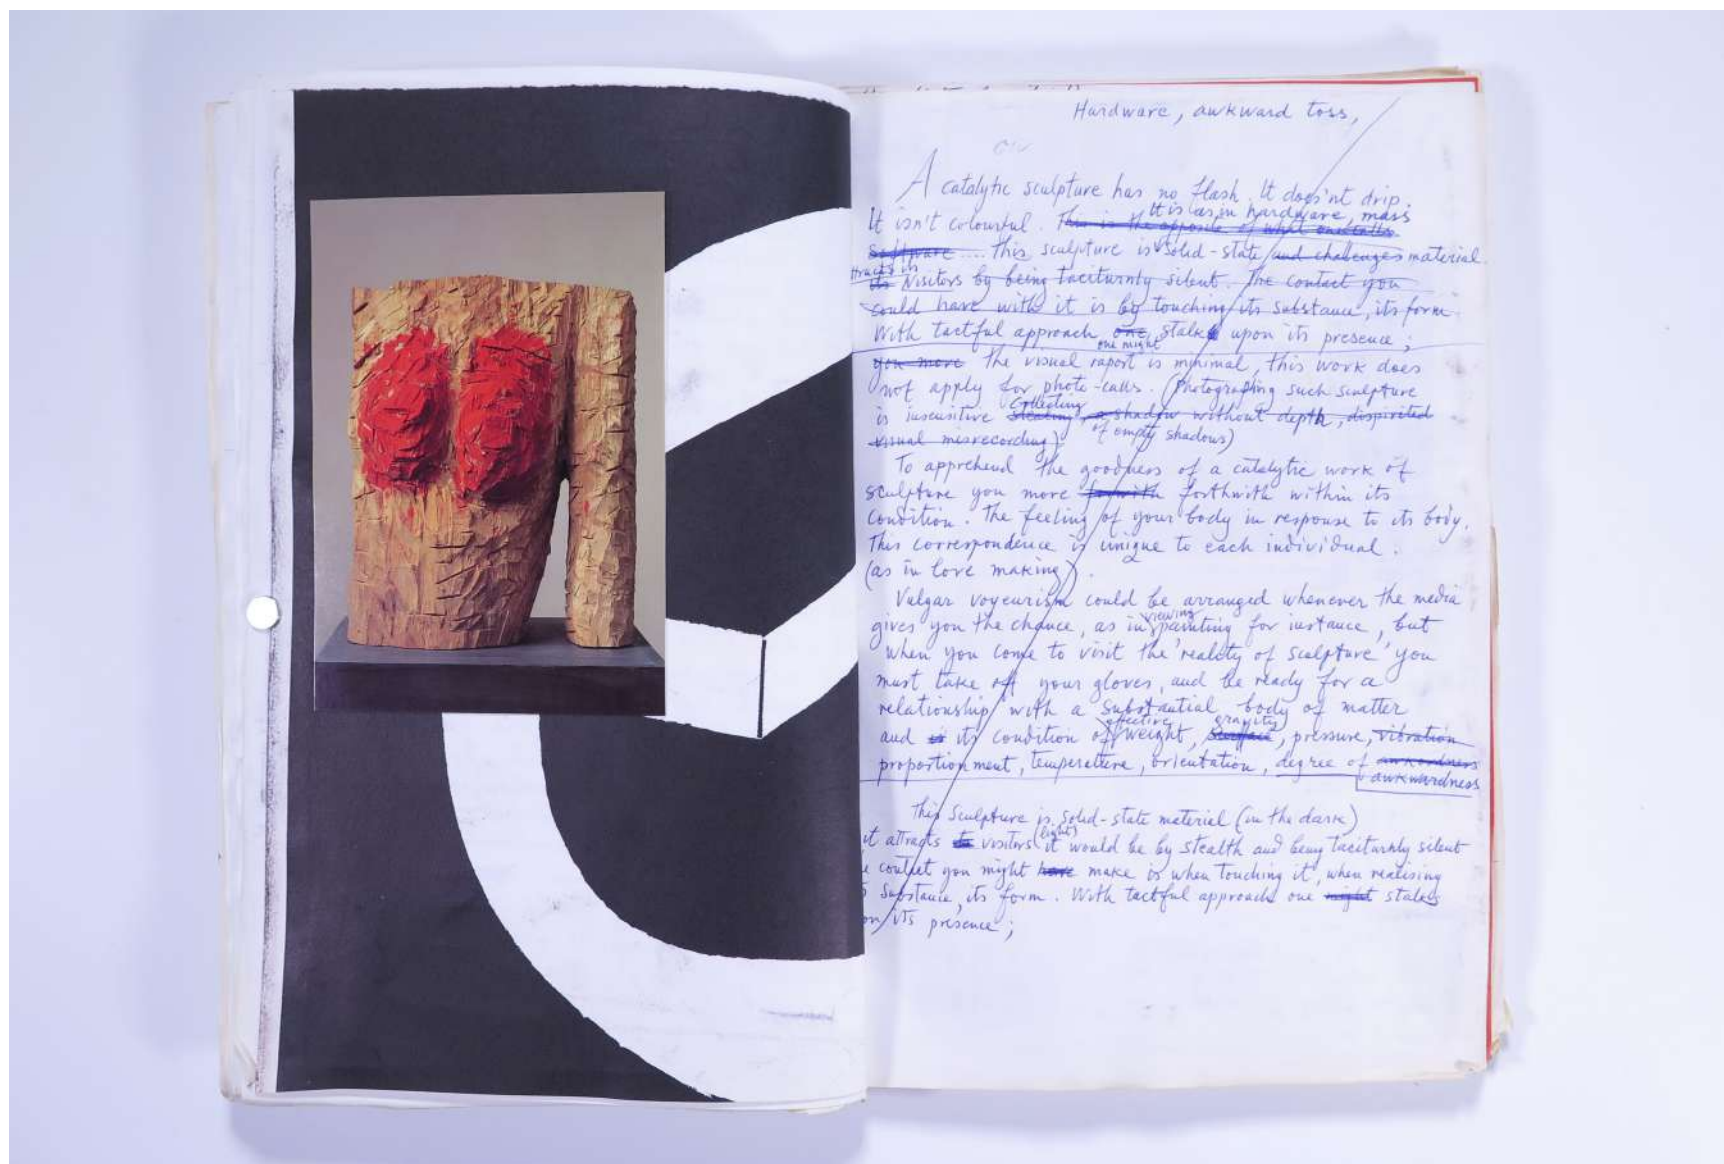 Hardware, awkward toss,
A catalytic sculpture has no flash. It does'nt drip.
It is as in hardware, mass
It isn't colourful. This is the opposite of what one calls
software .... This sculpture is solid-state and challenges material.
its visitors by being taciturnly silent. The contact you
could have with it is by touching its substance, its form.
With tactful approach one stalks upon its presence;
one might
you move the visual raport is minimal, this work does
not apply for photo-calls. (Photographing such sculpture
collecting
is insensitive stealing, a shadow without depth, dispirited
of empty shadows)
visual misrecording)
To apprehend the goodness of a catalytic work of
sculpture you move forthwith within its
condition. The feeling of your body in response to its body.
This correspondence is unique to each individual.
(as in love making).
Vulgar voyeurism could be arranged whenever the media
viewing
gives you the chance, as in painting for instance, but
when you come to visit the 'reality of sculpture' you
must take off your gloves, and be ready for a
relationship with a substantial body of matter
effective gravity
and its condition of weight, surface, pressure, vibration
proportionment, temperature, orientation, degree of awkwardness
awkwardness
This sculpture is solid-state material (in the dark)
(light)
it attracts visitors it would be by stealth and being taciturnly silent
contact you might have make is when touching it, when realising
substance, its form. With tactful approach one might stalks
on its presence;